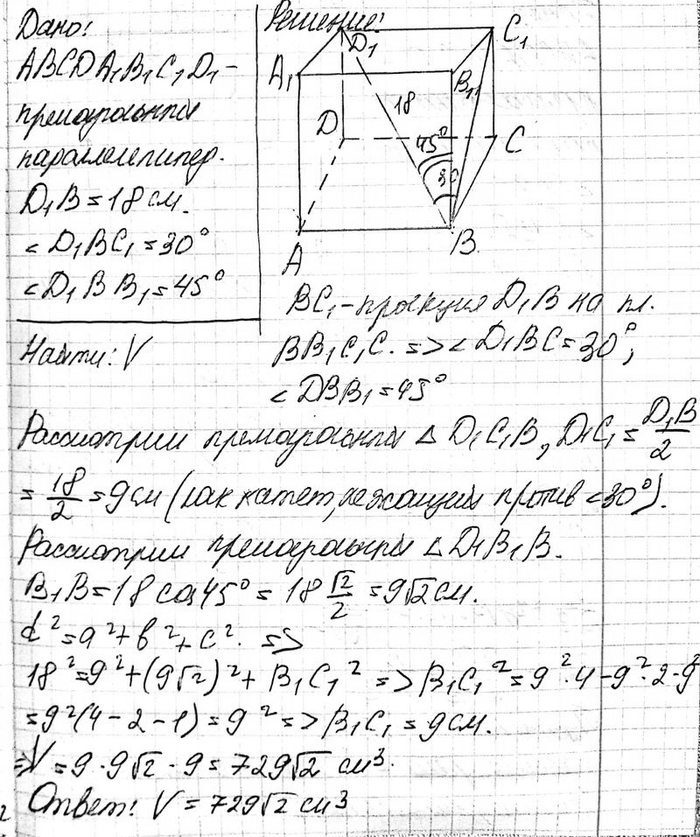 Дано:
ABCDA₁B₁C₁D₁ -
прямоугольный
параллелепипед.
D₁B = 18 см.
∠D₁BC₁ = 30°
∠D₁BB₁ = 45°
Найти: V
Решение:
D₁
C₁
A₁
B₁
18
D
45°
30
C
A
B
BC₁ - проекция D₁B на пл.
BB₁C₁C. => ∠D₁BC = 30°;
∠DBB₁ = 45°
Рассмотрим прямоугольный Δ D₁C₁B, D₁C₁ = D₁B/2
= 18/2 = 9 см (как катет, лежащий против ∠30°).
Рассмотрим прямоугольный Δ D₁B₁B.
B₁B = 18 cos45° = 18 √2/2 = 9√2 см.
d² = a² + b² + c² =>
18² = 9² + (9√2)² + B₁C₁² => B₁C₁² = 9²·4 - 9²·2 - 9²
= 9²(4 - 2 - 1) = 9² => B₁C₁ = 9 см.
=> V = 9 · 9√2 · 9 = 729√2 см³.
Ответ: V = 729√2 см³